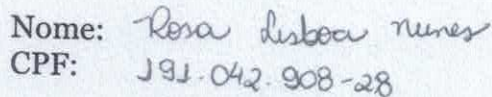 Nome: Rosa Lisboa nunes
CPF: 191.042.908-28